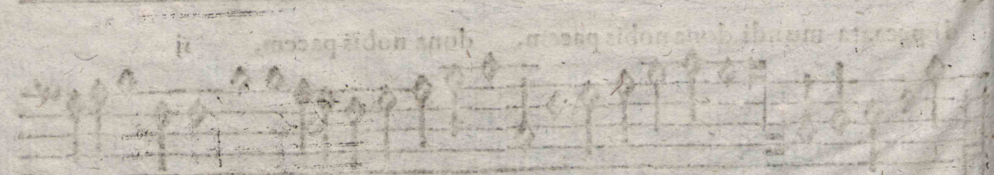 peccata mundi dona nobis pacem, dona nobis pacem. ij